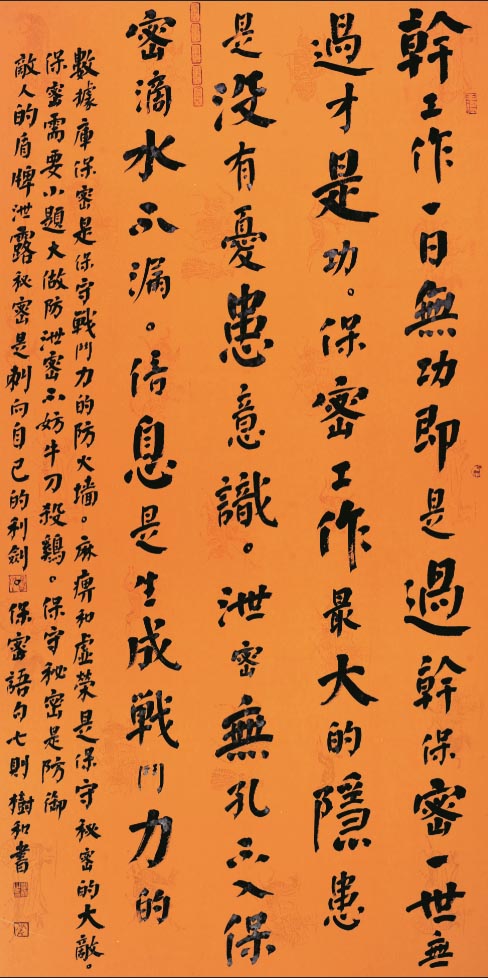 幹工作一日無功即是過幹保密一世無
過才是功。保密工作最大的隱患
是没有憂患意識。泄密無孔不入保
密滴水不漏。信息是生成戰鬥力的
數據庫保密是保守戰鬥力的防火墙。麻痹和虚榮是保守秘密的大敵。
保密需要小題大做防泄密不妨牛刀殺鷄。保守秘密是防御
敵人的盾牌泄露秘密是刺向自己的利劍 保密語句七則樹和書